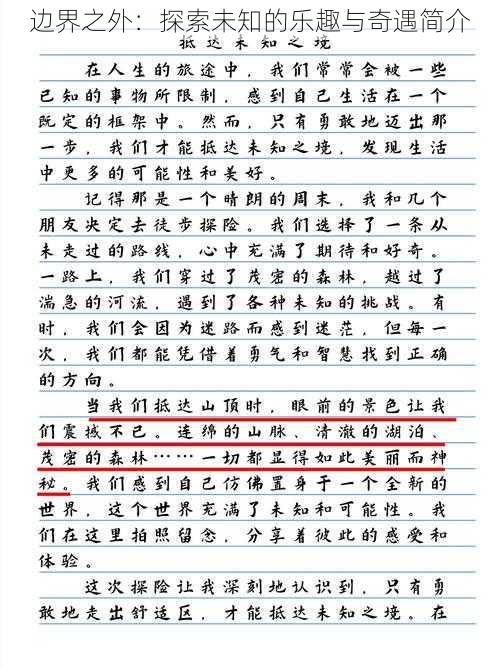 边界之外：探索未知的乐趣与奇遇简介
抵达未知之境
在人生的旅途中，我们常常会被一些
已知的事物所限制，感到自己生活在一个
既定的框架中。然而，只有勇敢地迈出那
一步，我们才能抵达未知之境，发现生活
中更多的可能性和美好。
记得那是一个晴朗的周末，我和几个
朋友决定去徒步探险。我们选择了一条从
未走过的路线，心中充满了期待和好奇。
一路上，我们穿过了茂密的森林，越过了
湍急的河流，遇到了各种未知的挑战。有
时，我们会因为迷路而感到迷茫，但每一
次，我们都能凭借着勇气和智慧找到正确
的方向。
当我们抵达山顶时，眼前的景色让我
们震撼不已。连绵的山脉、清澈的湖泊、
茂密的森林……一切都显得如此美丽而神
秘。我们感到自己仿佛置身于一个全新的
世界，这个世界充满了未知和可能性。我
们在这里拍照留念，分享着彼此的感受和
体验。
这次探险让我深刻地认识到，只有勇
敢地走出舒适区，才能抵达未知之境。在